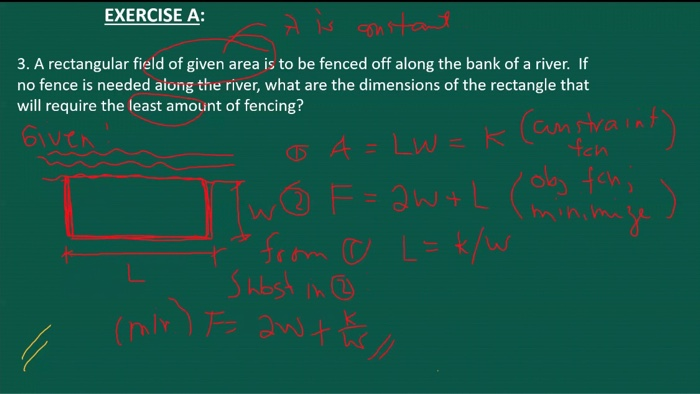 EXERCISE A:
A is constant
3. A rectangular field of given area is to be fenced off along the bank of a river. If
no fence is needed along the river, what are the dimensions of the rectangle that
will require the least amount of fencing?
Given:
① A = LW = K (constraint fcn)
② F = 2W + L (obj fcn, minimize)
W
L
from ① L = k/w
Subst in ②
(min) F = 2W + K/W //
//